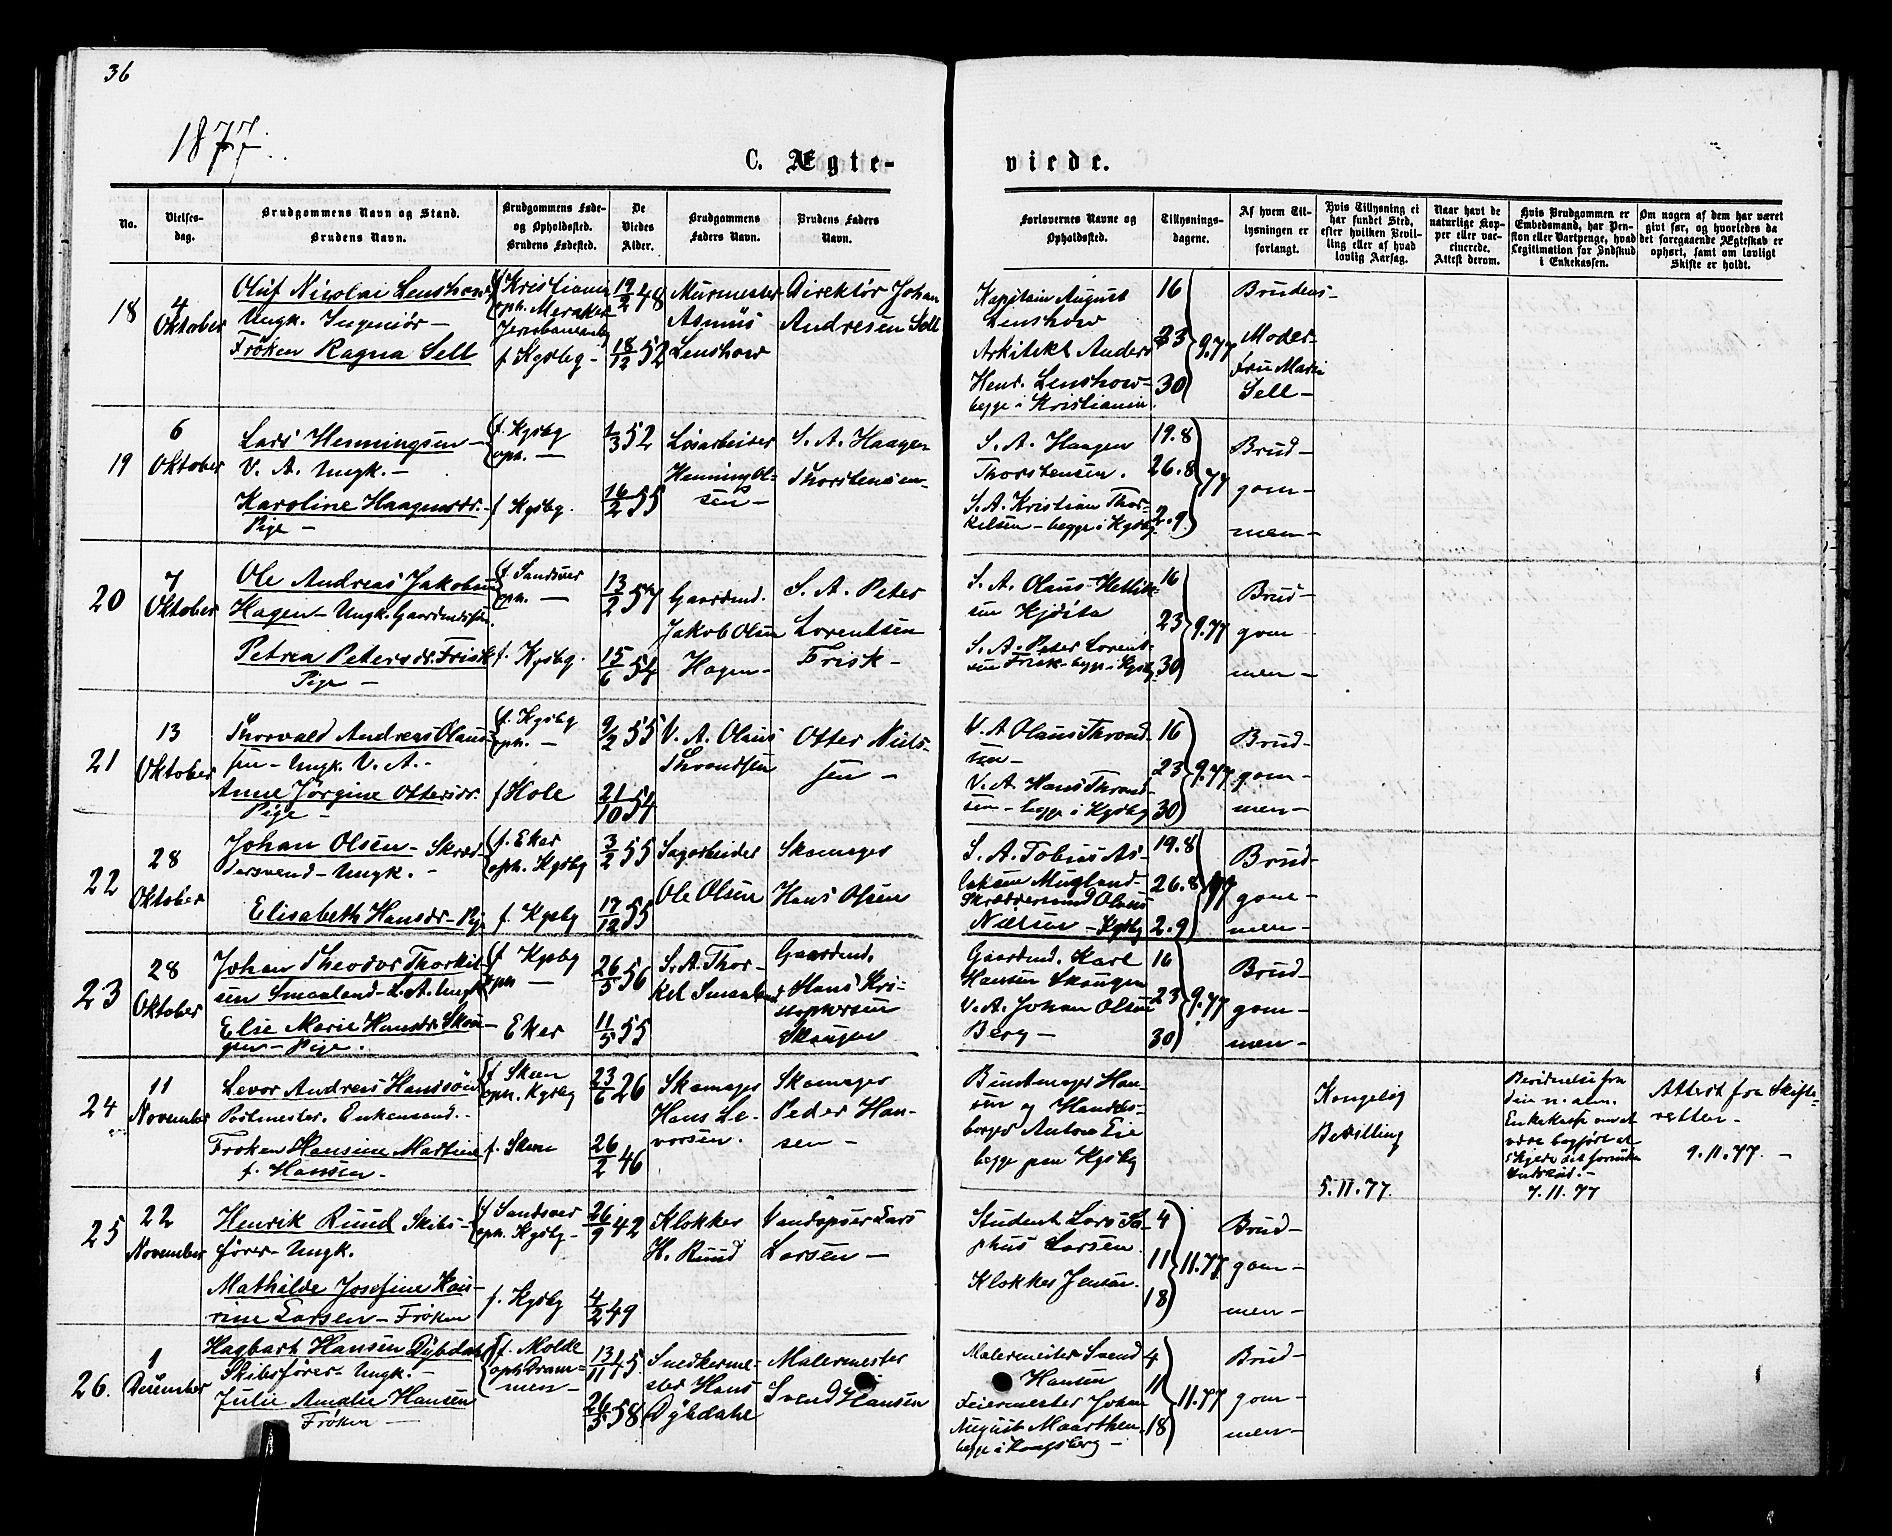 36
1877.
C. Ægte-
viede.
No.
Vielses-
dag.
Brudgommens Navn og Stand.
Brudens Navn.
Brudgommens Føde-
og Opholdssted.
Brudens Fødested.
De
Viedes
Alder.
Brudgommens
Faders Navn.
Brudens Faders
Navn.
Forlovernes Navne og
Opholdssted.
Tillysnings-
dagene.
Af hvem Til-
lysningen er
forlangt.
Hvis Tillysning ei
har fundet Sted,
efter hvilken Bevil-
ling eller af hvad
lovlig Aarsag.
Naar havt de
naturlige Kop-
per eller vac-
cinerede.
Attest derom.
Hvis Brudgommen er
Embedsmand, har Pen-
sion eller Vartpenge, hvad
Legitimation for Indskud
i Enkekassen.
Om nogen af dem har været
givt før, og hvorledes da
det foregaaende Ægteskab er
ophørt, samt om lovligt
Skifte er holdt.
18
4
Oktober
Oluf Nicolai Lenshow
Ungk. Ingeniør -
Frøken Ragna Sell
f. Kristiania
oph. Meraker
Jernbaneanlæg
f. Kgsbg -
19/2 48
18/12 52
Murmester
Asmus
Lenshow
Direktør Johan
Andresen Sell
Kapitain August
Lenshow
Arkitekt Anders
Henr. Lenshow -
begge i Kristiania
16
23
30
9.77
Brudens
Moder -
Fru Marie
Sell -
19
6
Oktober
Lars Henningsen -
V. A. Ungk. -
Karoline Haagensdr. -
Pige -
f. Kgsbg
oph. -
f. Kgsbg.
1/3 52
16/2 55
Løsarbeider
Henning Ol-
sen -
S. A. Haagen
Thorstensen -
S. A. Haagen
Thorstensen.
S. A. Kristian Thor-
kelsen - begge i Kgsbg.
19.8
26.8
2.9
77
Brud-
gom-
men -
20
7
Oktober
Ole Andreas Jakobsen
Hagen - Ungk. Gaardmdssøn.
Petrea Petersdr. Frisk
Pige -
f. Sandsver
oph. -
f. Kgsbg.
13/2 57
15/6 54
Gaardmd.
Jakob Olsen
Hagen -
S. A. Peter
Lorentsen
Frisk -
S. A. Olaus Hellik-
sen
S. A. Peter Lorent-
sen Frisk - begge i Kgsbg
16
23
30
9.77
Brud-
gom-
men -
21
13
Oktober
Thorvald Andreas Olaus-
sen - Ungk. V. A. -
Anne Jørgine Ottersdr.
Pige -
f. Kgsbg
oph. -
f. Hole
9/2 55
21/10 54
V. A. Olaus
Throndsen
Otter Niels-
sen -
V. A. Olaus Thrond-
sen -
V. A. Hans Thrond-
sen - begge i Kgsbg
16
23
30
9.77
Brud-
gom-
men -
22
28
Oktober
Johan Olsen - Skræd-
dersvend - Ungk. -
Elisabeth Hansdr - Pig
f. Eker
oph. Kgsbg
f. Kgsbg
3/2 55
17/12 55
Sagarbeider
Ole Olsen
Skomager
Hans Olsen
S. A. Tobias As-
laksen Mugland -
Skræddersvend Olaus
Nielsen - Kgsbg
19.8
26.8
2.9
77
Brud-
gom-
men -
23
28
Oktober
Johan Theodor Thorkil-
sen Smaaland - S. A. Ungk
Elise Marie Hansdr Skau-
gen - Pige.
f. Kgsbg
oph -
Eker
26/5 56
11/5 55
S. A. Thor-
kel Smaaland
Gaardmd.
Hans Kri-
stophersen
Skougen
Gaardmd. Karl
Hansen Skougen
V. A. Johan Olsen
Berg -
16
23
30
9.77
Brud-
gom-
men -
24
11
November
Levor Andreas Hanssøn
Postmester. Enkemand. -
Frøken Hansine Martine
f. Hansen -
f. Skeen
oph. Kgsbg
f. Skeen
23/6 26
26/2 46
Skomager
Hans Le-
vorsen.
Skomager
Peder Han-
sen -
Buntmager Han-
sen og Handels-
borger Anton Eie
begge paa Kgsbg
Kongelig
Bevilling
5.11.77.
Bevidnelse fra
den n. alm.
Enkekasse om at
være
7.11.77
Attest fra Skifte-
retten -
9.11.77. -
25
22
November
Henrik Ruud Skibs-
fører - Ungk.
Mathilde Josefine Kau-
rine Larsen - Frøken
f. Sandsver
oph. Kgsbg -
f. Kgsbg
26/9 42
4/2 49
Klokker
H. Ruud
Vandopser Lars
Larsen -
Student Lars Sa-
phus Larsen
Klokker Jensen.
4
11
18
11.77
Brud-
gom-
men -
26.
1
December
Hagbart Hansen Dybdahl
Skibsfører - Ungk. -
Julie Amalie Hansen
Frøken -
f. Molde
oph. Dram-
men -
13/11 45.
26/5 58
Snedkerme-
ster Hans
Dybdahl
Malermester
Svend Hansen
Malermester Svend
Hansen
Feiermester Johan
August Maarthen.
begge i Kongsberg -
4
11
18
11.77
Brud-
gom-
men -